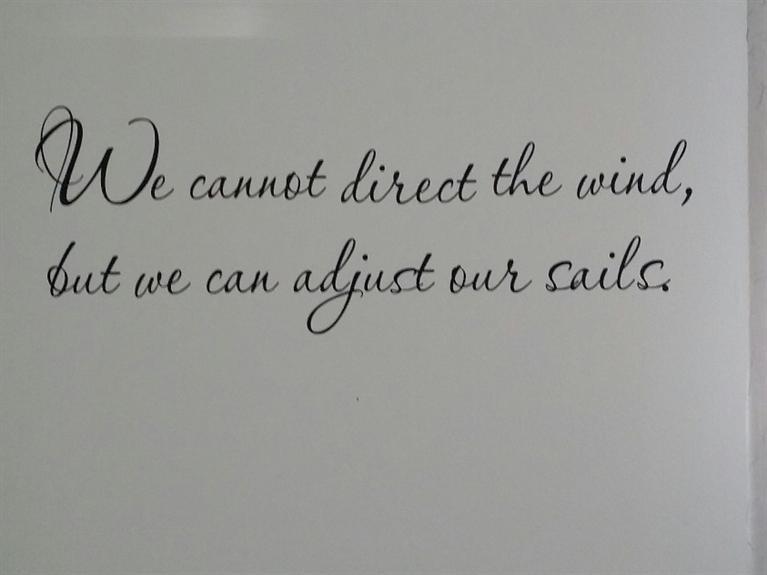 We cannot direct the wind,
but we can adjust our sails.